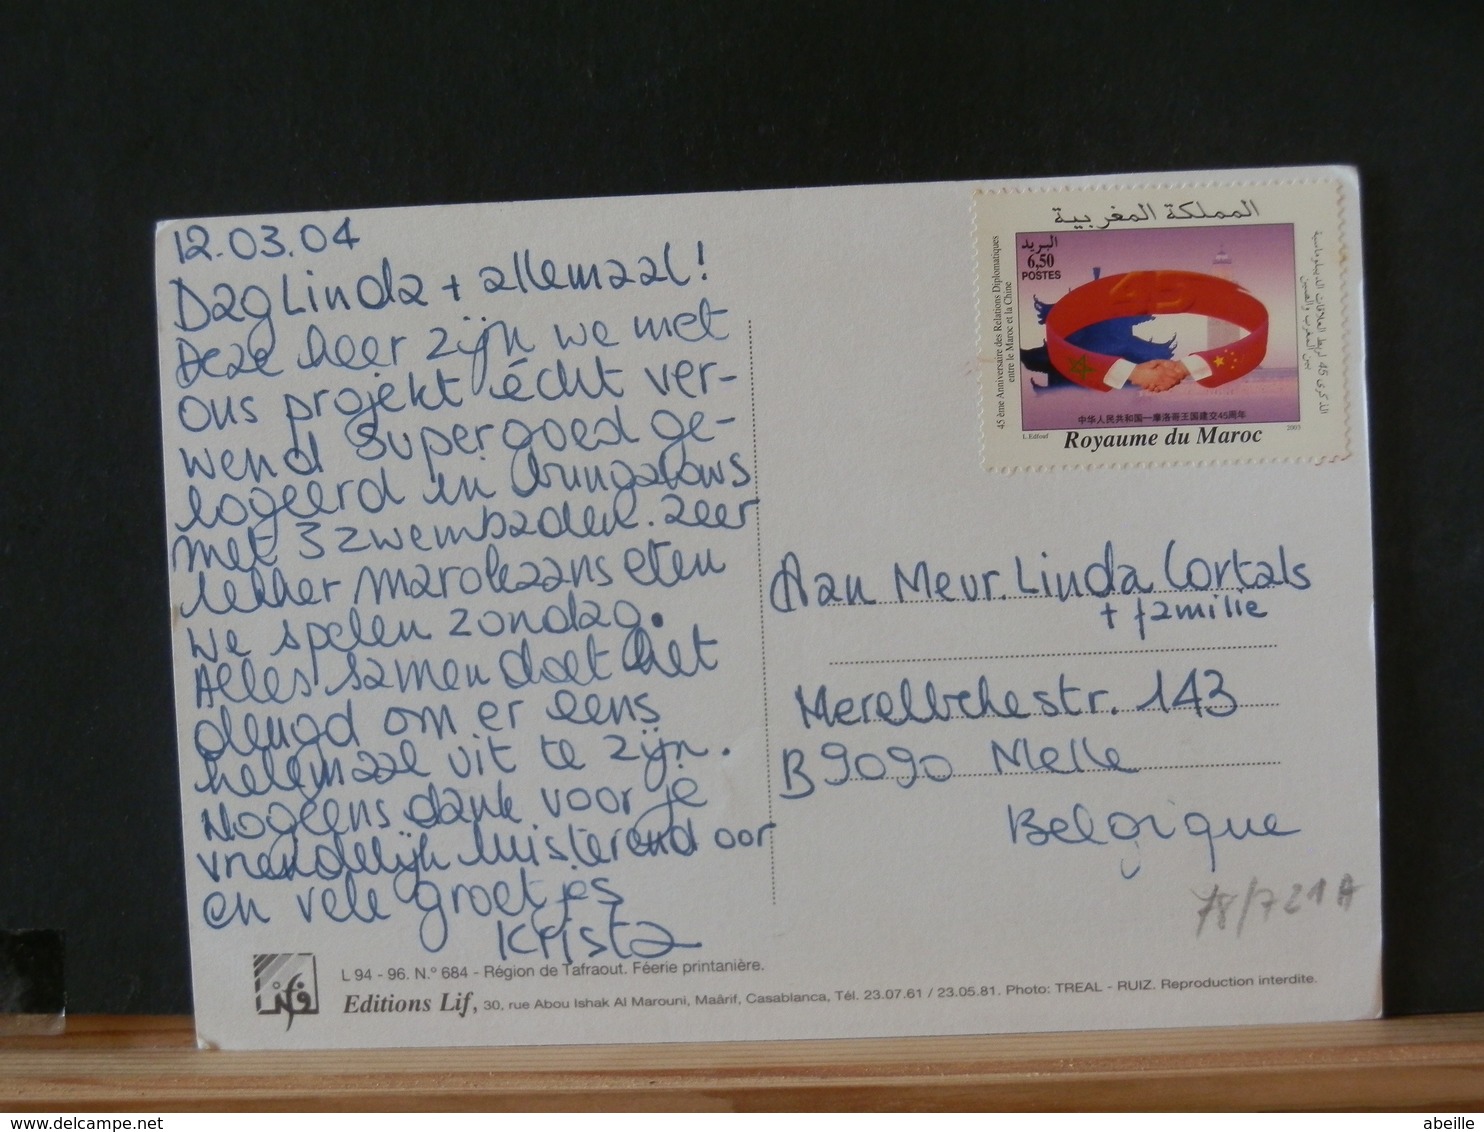 12.03.04
Dag Linda + allemaal!
Deze keer zijn we met
ons projekt écht ver-
wend supergoed ge-
logeerd in bungalows
met 3 zwembaden. Zeer
lekker Marokaans eten
We spelen zondag.
Alles samen doet het
deugd om er eens
helemaal uit te zijn.
Nogeens dank voor je
vriendelijk luisterend oor
en vele groetjes
Krista
المملكة المغربية
البريد
6,50
POSTES
45 ème Anniversaire des Relations Diplomatiques
entre le Maroc et la Chine
الذكرى 45 لربط العلاقات الديبلوماسية
بين المغرب والصين
45
中华人民共和国—摩洛哥王国建交45周年
L. Edfouf
2003
Royaume du Maroc
Aan Mevr. Linda Cortals
+ familie
Merelbekestr. 143
B 9090 Melle
Belgique
78/721A
L 94 - 96. N.° 684 - Région de Tafraout. Féerie printanière.
Editions Lif, 30, rue Abou Ishak Al Marouni, Maârif, Casablanca, Tél. 23.07.61 / 23.05.81. Photo: TREAL - RUIZ. Reproduction interdite.
abeille